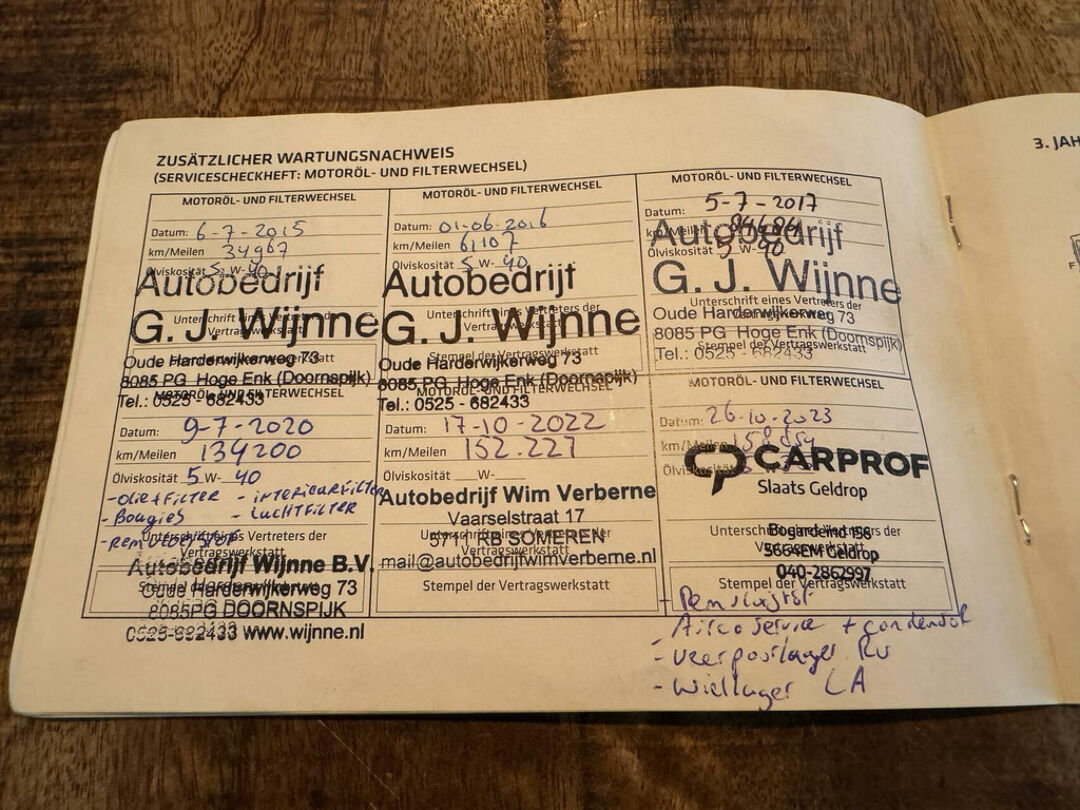 ZUSÄTZLICHER WARTUNGSNACHWEIS
(SERVICESCHECKHEFT: MOTORÖL- UND FILTERWECHSEL)
MOTORÖL- UND FILTERWECHSEL
Datum: 6-7-2015
km/Meilen 34967
Ölviskosität 5 W- 40
Autobedrijf
G. J. Wijnne
Unterschrift eines Vertreters der
Vertragswerkstatt
Oude Harderwijkerweg 73
8085 PG Hoge Enk (Doornspijk)
Tel.: 0525 - 682433
MOTORÖL- UND FILTERWECHSEL
Datum: 01-06-2016
km/Meilen 61107
Ölviskosität 5 W- 40
Autobedrijf
G. J. Wijnne
Unterschrift eines Vertreters der
Vertragswerkstatt
Stempel der Vertragswerkstatt
Oude Harderwijkerweg 73
8085 PG Hoge Enk (Doornspijk)
Tel.: 0525 - 682433
MOTORÖL- UND FILTERWECHSEL
Datum: 5-7-2017
km/Meilen 84684
Ölviskosität 5 W- 40
Autobedrijf
G. J. Wijnne
Unterschrift eines Vertreters der
Vertragswerkstatt
Oude Harderwijkerweg 73
8085 PG Hoge Enk (Doornspijk)
Stempel der Vertragswerkstatt
Tel.: 0525 - 682433
MOTORÖL- UND FILTERWECHSEL
Datum: 9-7-2020
km/Meilen 134200
Ölviskosität 5 W- 40
- OLIE+FILTER - INTERIEURFILTER
- BOUGIES - LUCHTFILTER
- REMVLOEISTOF
Unterschrift eines Vertreters der
Vertragswerkstatt
Autobedrijf Wijnne B.V.
Oude Harderwijkerweg 73
8085PG DOORNSPIJK
0525-682433 www.wijnne.nl
MOTORÖL- UND FILTERWECHSEL
Datum: 17-10-2022
km/Meilen 152.227
Ölviskosität W-
Autobedrijf Wim Verberne
Vaarselstraat 17
Unterschrift eines Vertreters der
5711 RB SOMEREN
Vertragswerkstatt
mail@autobedrijfwimverberne.nl
Stempel der Vertragswerkstatt
MOTORÖL- UND FILTERWECHSEL
Datum: 26-10-2023
km/Meilen
Ölviskosität
CARPROF
Slaats Geldrop
Unterschrift eines Vertreters der
Vertragswerkstatt
Bogardeind 156
5664EN Geldrop
040-2862997
Stempel der Vertragswerkstatt
- Airco service + condensor
- veerpootlager RV
- Wiellager LA
3. JAH